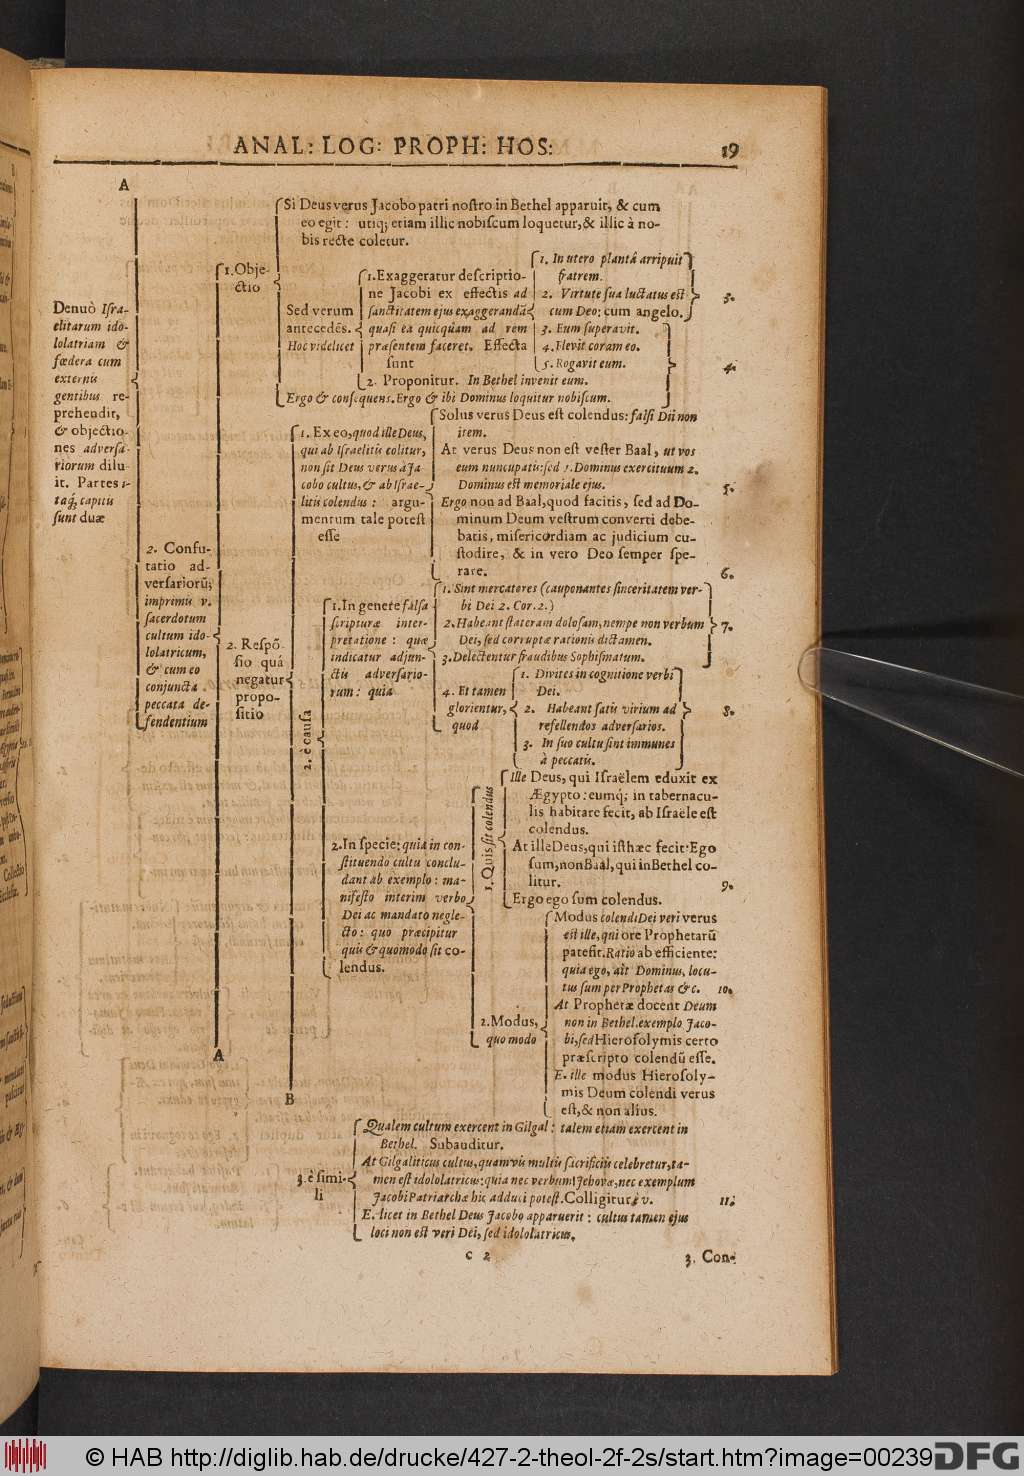 ANAL: LOG: PROPH: HOS: 19
A
Denuò Isra-
elitarum ido-
lolatriam &
fœdera cum
externis
gentibus re-
prehendit,
& objectio-
nes adversa-
riorum dilu-
it. Partes i-
taq; capitis
sunt duæ
1. Obje-
ctio
Si Deus verus Jacobo patri nostro in Bethel apparuit, & cum
eo egit: utiq; etiam illic nobiscum loquetur, & illic à no-
bis recte coletur.
Sed verum
antecedēs.
Hoc videlicet
1. Exaggeratur descriptio-
ne Jacobi ex effectis ad
sanctitatem ejus exaggerandā
quasi ea quicquam ad rem
præsentem faceret. Effecta
sunt
1. In utero plantâ arripuit
fratrem.
2. Virtute sua luctatus est
cum Deo: cum angelo. 3.
3. Eum superavit.
4. Flevit coram eo.
5. Rogavit eum. 4.
2. Proponitur. In Bethel invenit eum.
Ergo & consequens. Ergo & ibi Dominus loquitur nobiscum.
2. Confu-
tatio ad-
versariorū;
imprimis v.
sacerdotum
cultum ido-
lolatricum,
& cum eo
conjuncta
peccata de-
fendentium
2. Respō-
sio quâ
negatur
propo-
sitio
1. Ex eo, quod ille Deus,
qui ab Israelitis colitur,
non sit Deus verus à Ja
cobo cultus, & ab Israe-
litis colendus: argu-
mentum tale potest
esse
Solus verus Deus est colendus: falsi Dii non
item.
At verus Deus non est vester Baal, ut vos
eum nuncupatis: sed 1. Dominus exercituum 2.
Dominus est memoriale ejus. 5.
Ergo non ad Baal, quod facitis, sed ad Do-
minum Deum vestrum converti debe-
batis, misericordiam ac judicium cu-
stodire, & in vero Deo semper spe-
rare. 6.
2. è causa
1. In genere falsa
scripturæ inter-
pretatione: quæ
indicatur adjun-
ctis adversario-
rum: quia
1. Sint mercatores (cauponantes sinceritatem ver-
bi Dei 2. Cor. 2.)
2. Habeant stateram dolosam, nempe non verbum
Dei, sed corruptæ rationis dictamen. 7.
3. Delectentur fraudibus Sophismatum.
4. Et tamen
glorientur,
quod
1. Divites in cognitione verbi
Dei.
2. Habeant satis virium ad
refellendos adversarios. 8.
3. In suo cultu sint immunes
à peccatis.
2. In specie: quia in con-
stituendo cultu conclu-
dant ab exemplo: ma-
nifesto interim verbo
Dei ac mandato negle-
cto: quo præcipitur
quis & quomodo sit co-
lendus.
1. Quis sit colendus
Ille Deus, qui Israëlem eduxit ex
Ægypto: eumq; in tabernacu-
lis habitare fecit, ab Israële est
colendus.
At ille Deus, qui isthæc fecit Ego
sum, non Baal, qui in Bethel co-
litur. 9.
Ergo ego sum colendus.
2. Modus,
quo modo
Modus colendi Dei veri verus
est ille, qui ore Prophetarū
patefit. Ratio ab efficiente:
quia ego, ait Dominus, locu-
tus sum per Prophetas &c. 10.
At Prophetæ docent Deum
non in Bethel. exemplo Jaco-
bi, sed Hierosolymis certo
præscripto colendū esse.
E. ille modus Hierosoly-
mis Deum colendi verus
est, & non alius.
A
B
3. è simi-
li
Qualem cultum exercent in Gilgal: talem etiam exercent in
Bethel. Subauditur.
At Gilgaliticus cultus, quamvis multis sacrificiis celebretur, ta-
men est idololatricus: quia nec verbum Jehovæ, nec exemplum
Jacobi Patriarchæ hic adduci potest. Colligitur è v. 11.
E. licet in Bethel Deus Jacobo apparuerit: cultus tamen ejus
loci non est veri Dei, sed idololatricus.
c 2
3. Con-
© HAB http://diglib.hab.de/drucke/427-2-theol-2f-2s/start.htm?image=00239
DFG